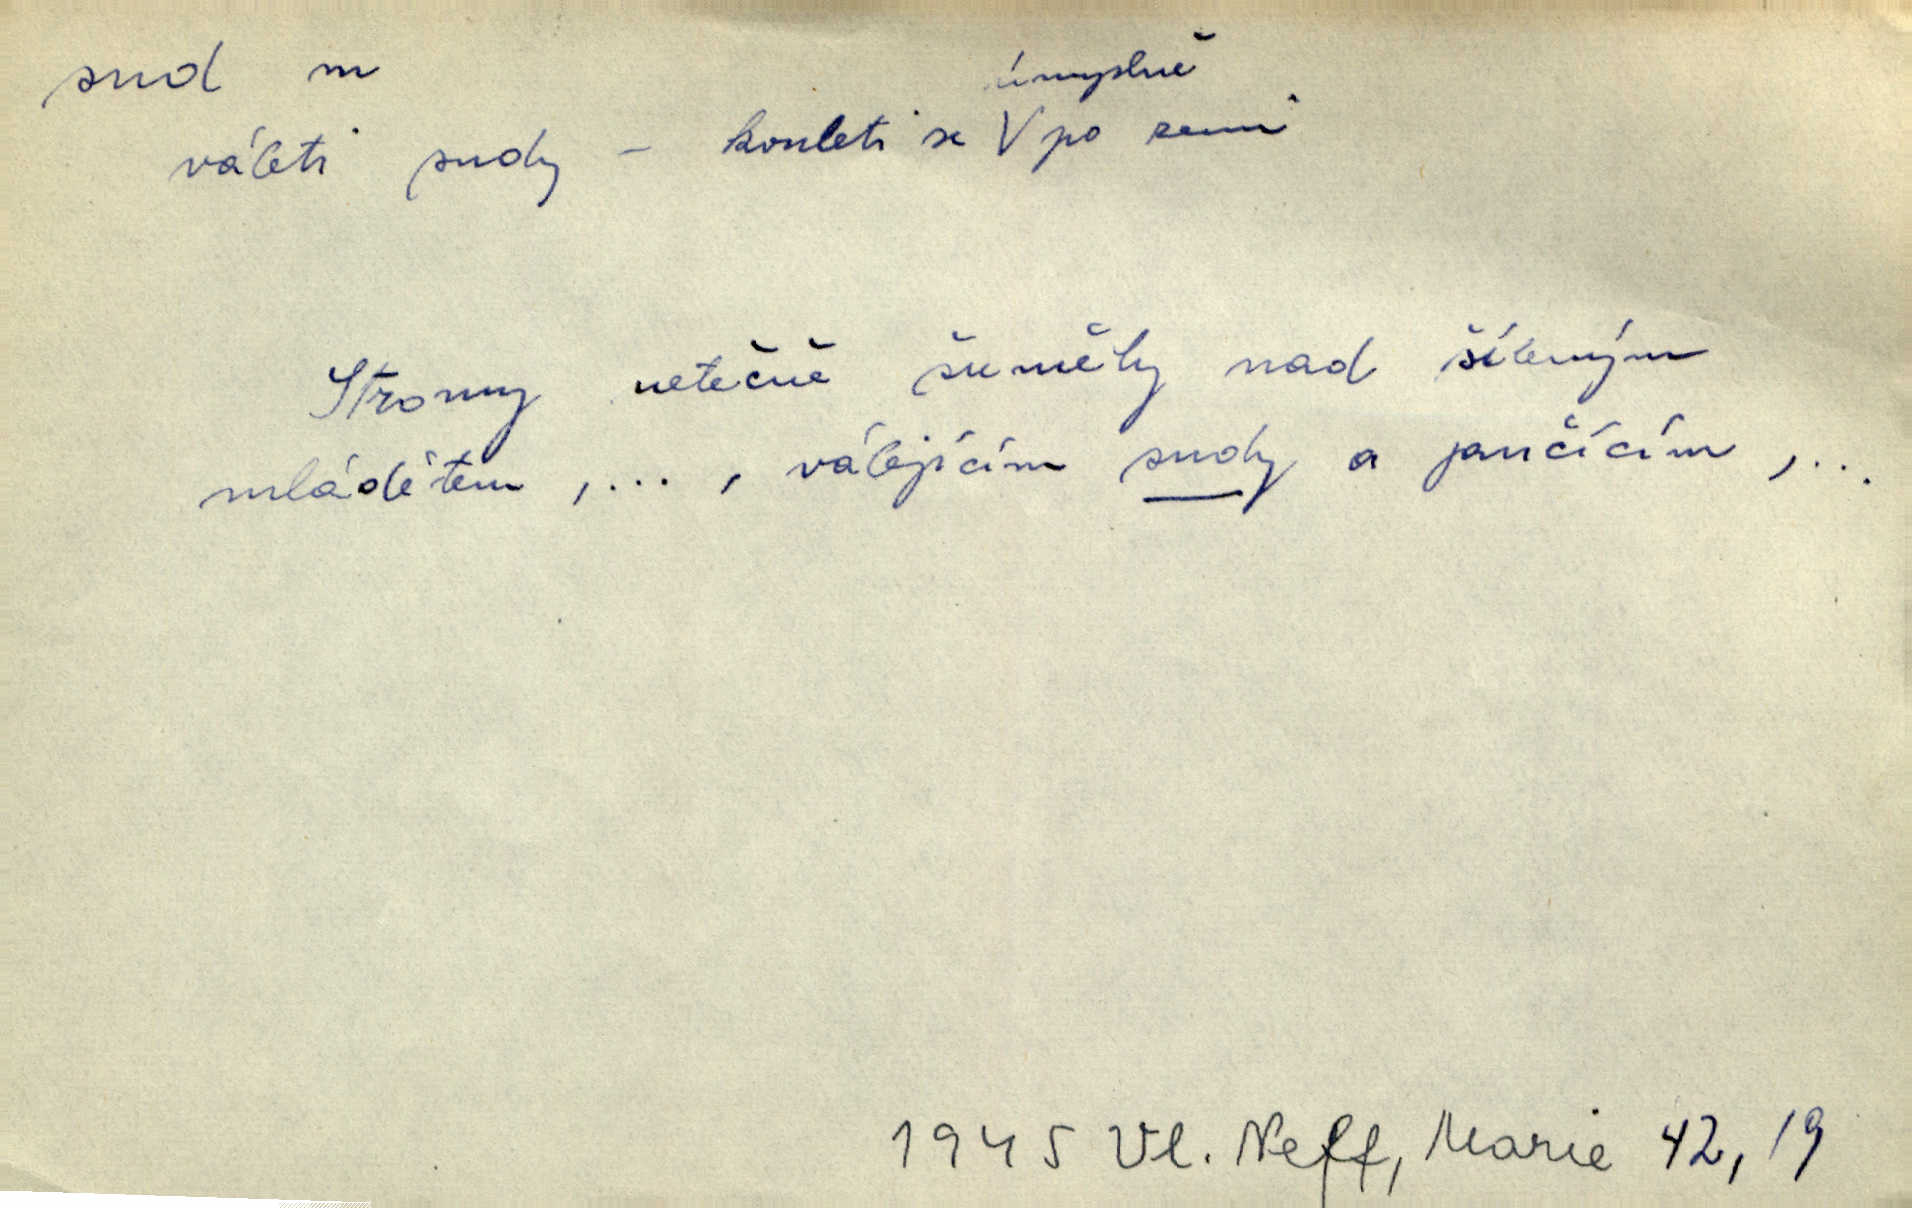 sud m
úmyslně
váleti sudy – kouleti se V po zemi
Stromy netečně šuměly nad šíleným
mládětem, ..., válejícím sudy a jančícím, ...
1945 Vl. Neff, Marie 42, 19